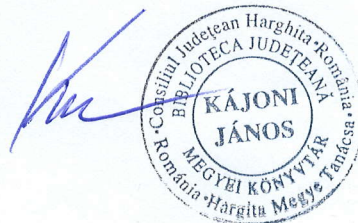 Consiliul Județean Harghita·România·
BIBLIOTECA JUDEȚEANĂ
KÁJONI
JÁNOS
MEGYEI KÖNYVTÁR
România·Hargita Megye Tanácsa·